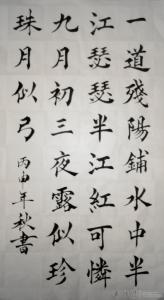 一道殘陽鋪水中半
江瑟瑟半江紅可憐
九月初三夜露似珍
珠月似弓丙申年秋書